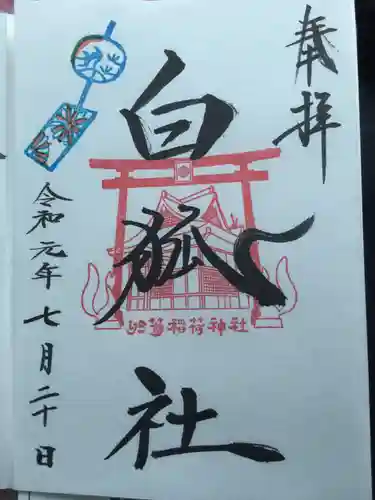 奉拝
白狐社
笠䅣稲荷神社
令和元年七月二十日